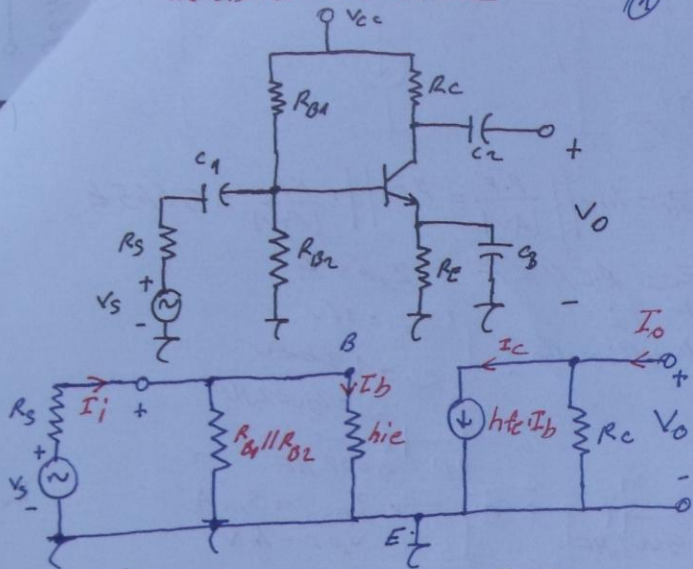 ①
Vcc
RB1
RC
C1
C2
+
RS
RB2
RE
CB
VO
+
VS
-
-
B
Ic
Io
RS
Ii
+
Ib
+
RB1//RB2
hie
hfe·Ib
RC
VO
+
VS
-
-
E